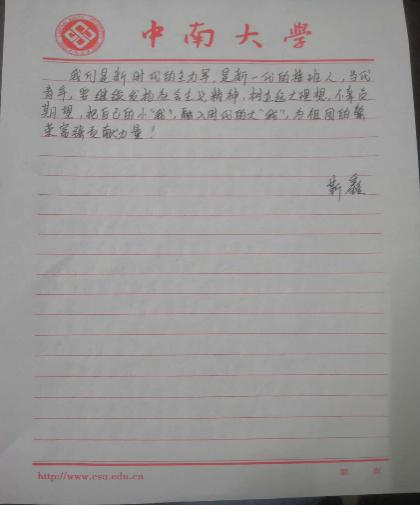 中南大学
我们是新时代的主力军,是新一代的接班人,当代
青年,要继续发扬社会主义精神,树立远大理想,不辜负
期望,把自己的小“我”,融入时代的大“我”,为祖国的繁
荣富强贡献力量!
靳鑫
http://www.csu.edu.cn
第 页